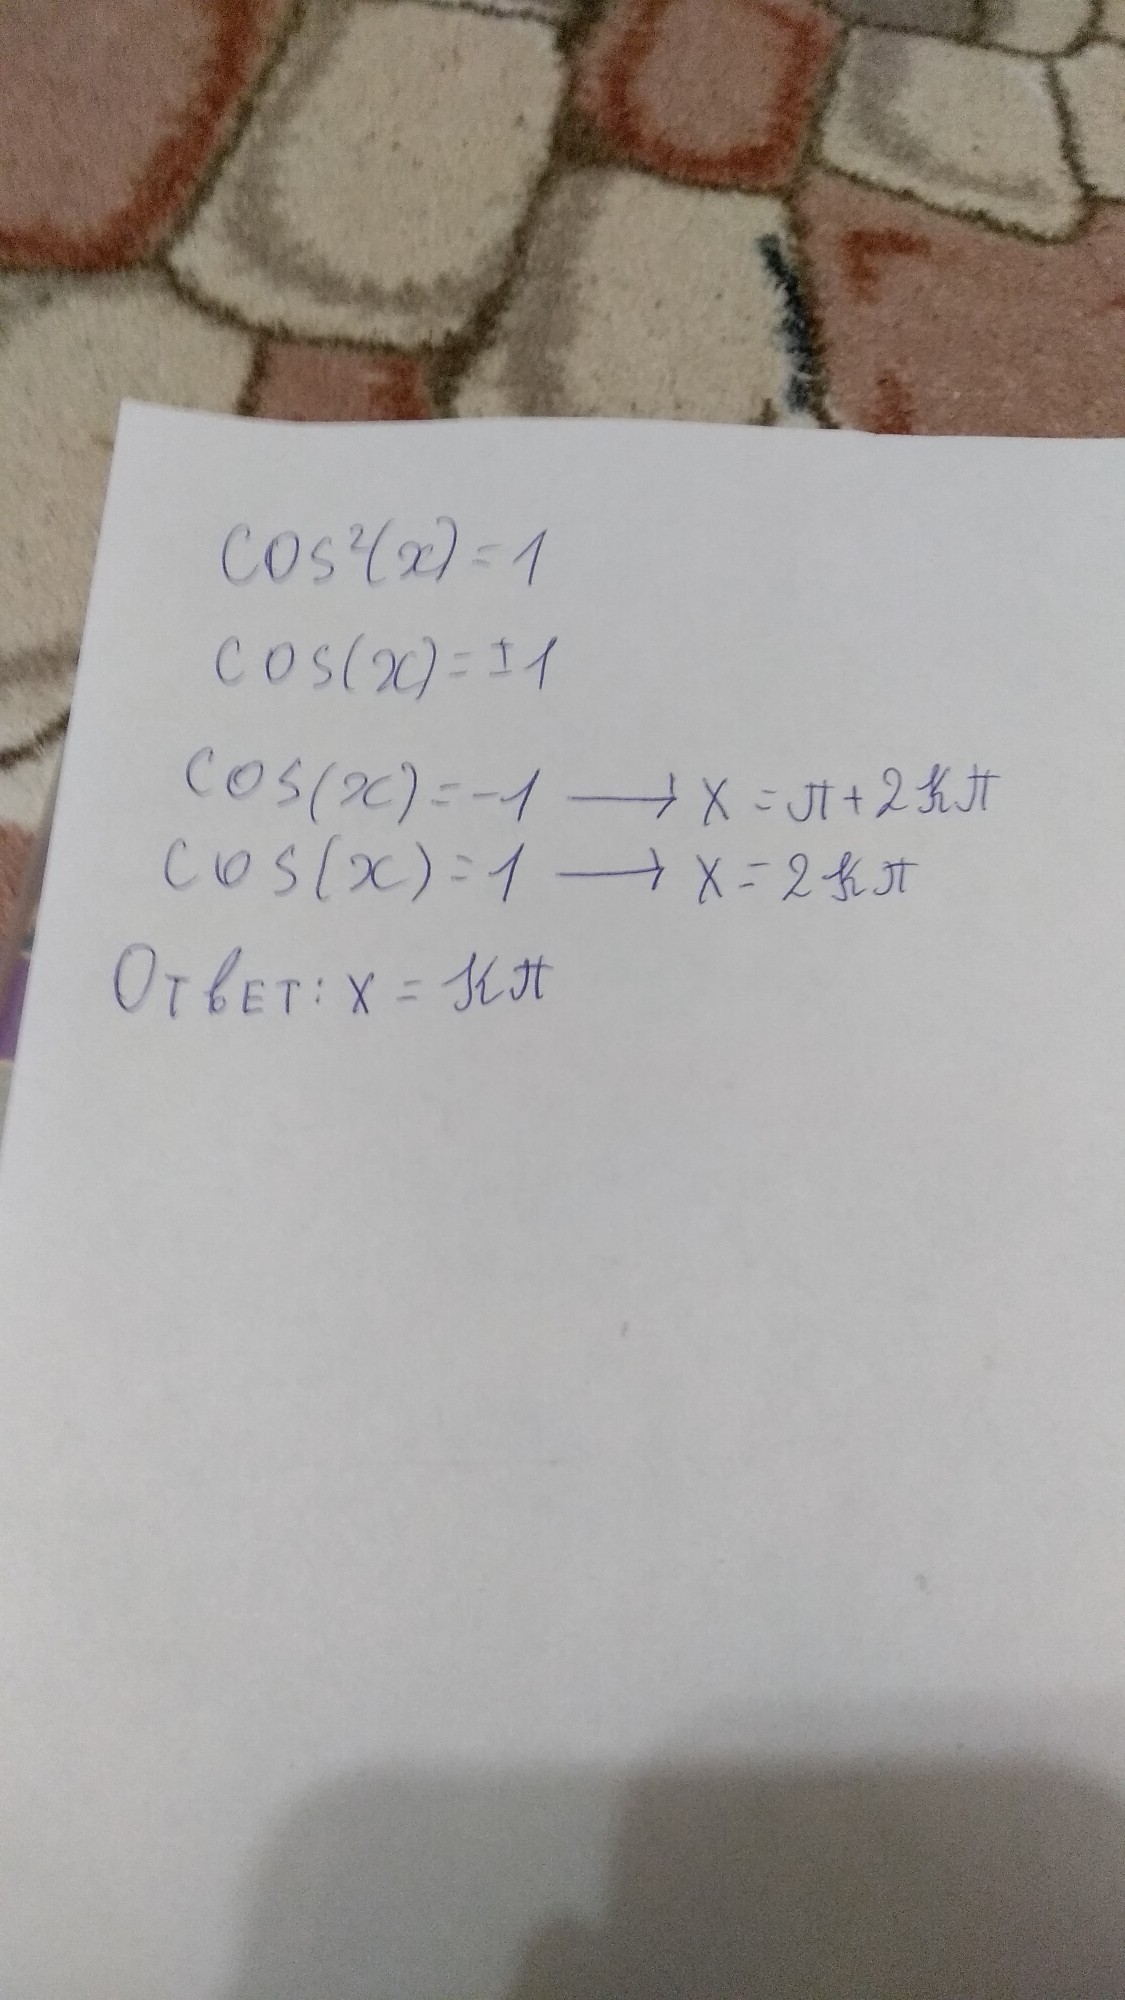 cos²(x)=1
cos(x)=±1
cos(x)=-1 → x=π+2кπ
cos(x)=1 → x=2кπ
Ответ: x=кπ